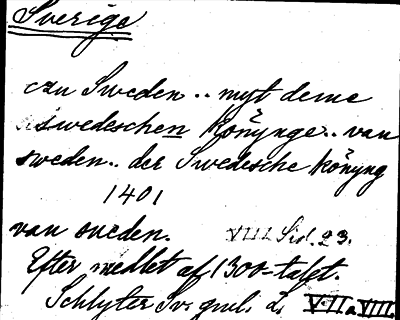 Sverige
czu Sweden .. myt deme
swedeschen könynge .. van
sweden .. der Swedesche könyng
1401
van sueden. VIII Sid. 23.
Efter medlet af 1300-talet.
Schlyter Sv. gml. L. VII a VIII.